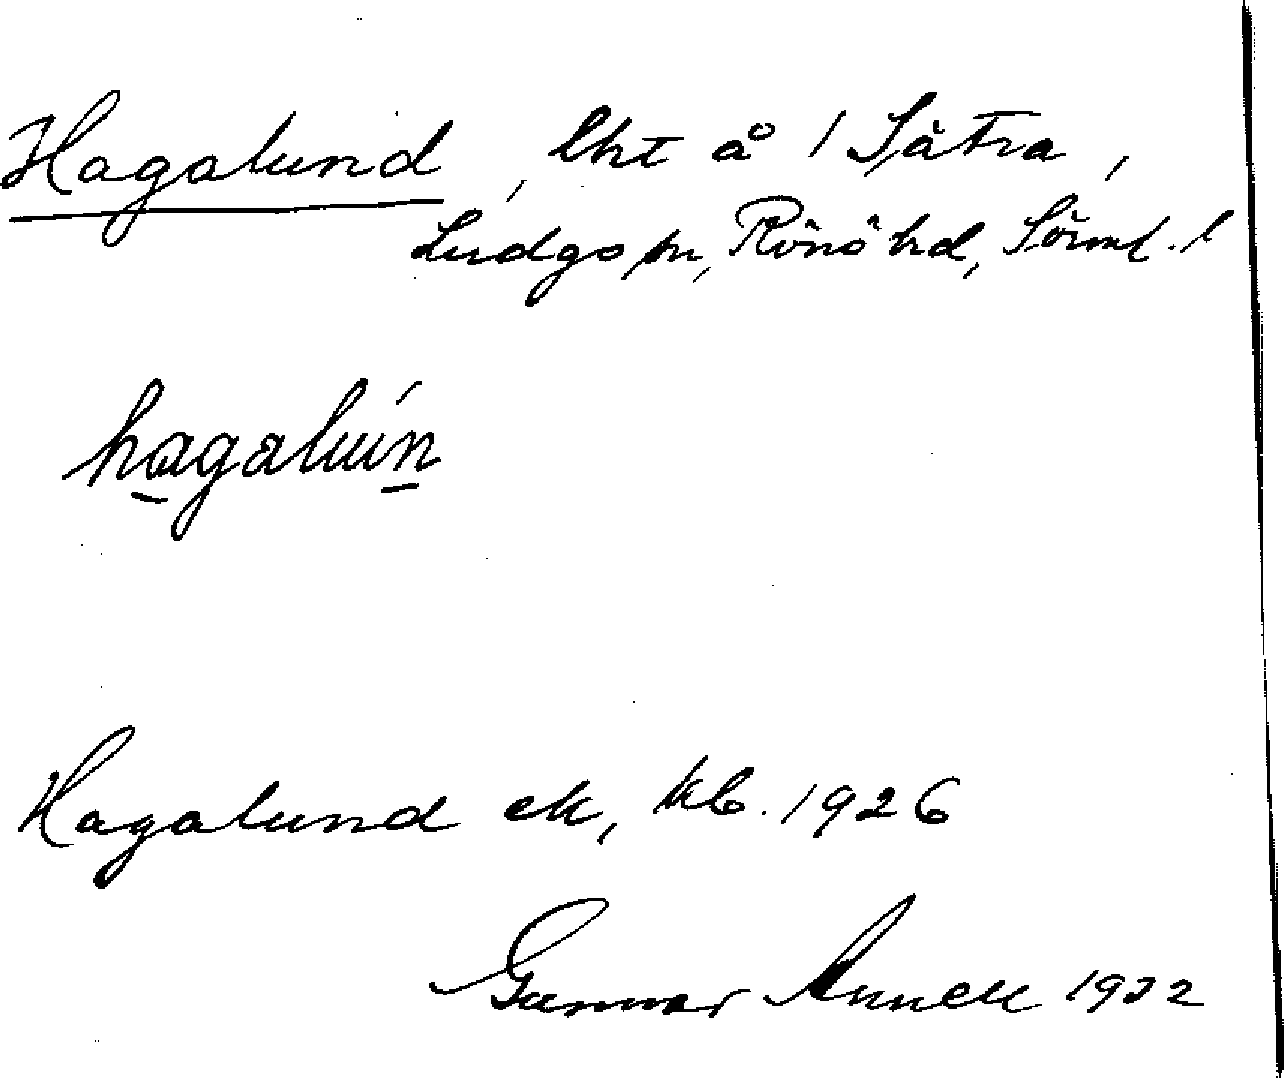 Hagalund, lht å / Sätra,
Ludgo sn, Rönö hd, Sörml. l
hagalun
Hagalund ek, kb. 1926
Gunnar 1932